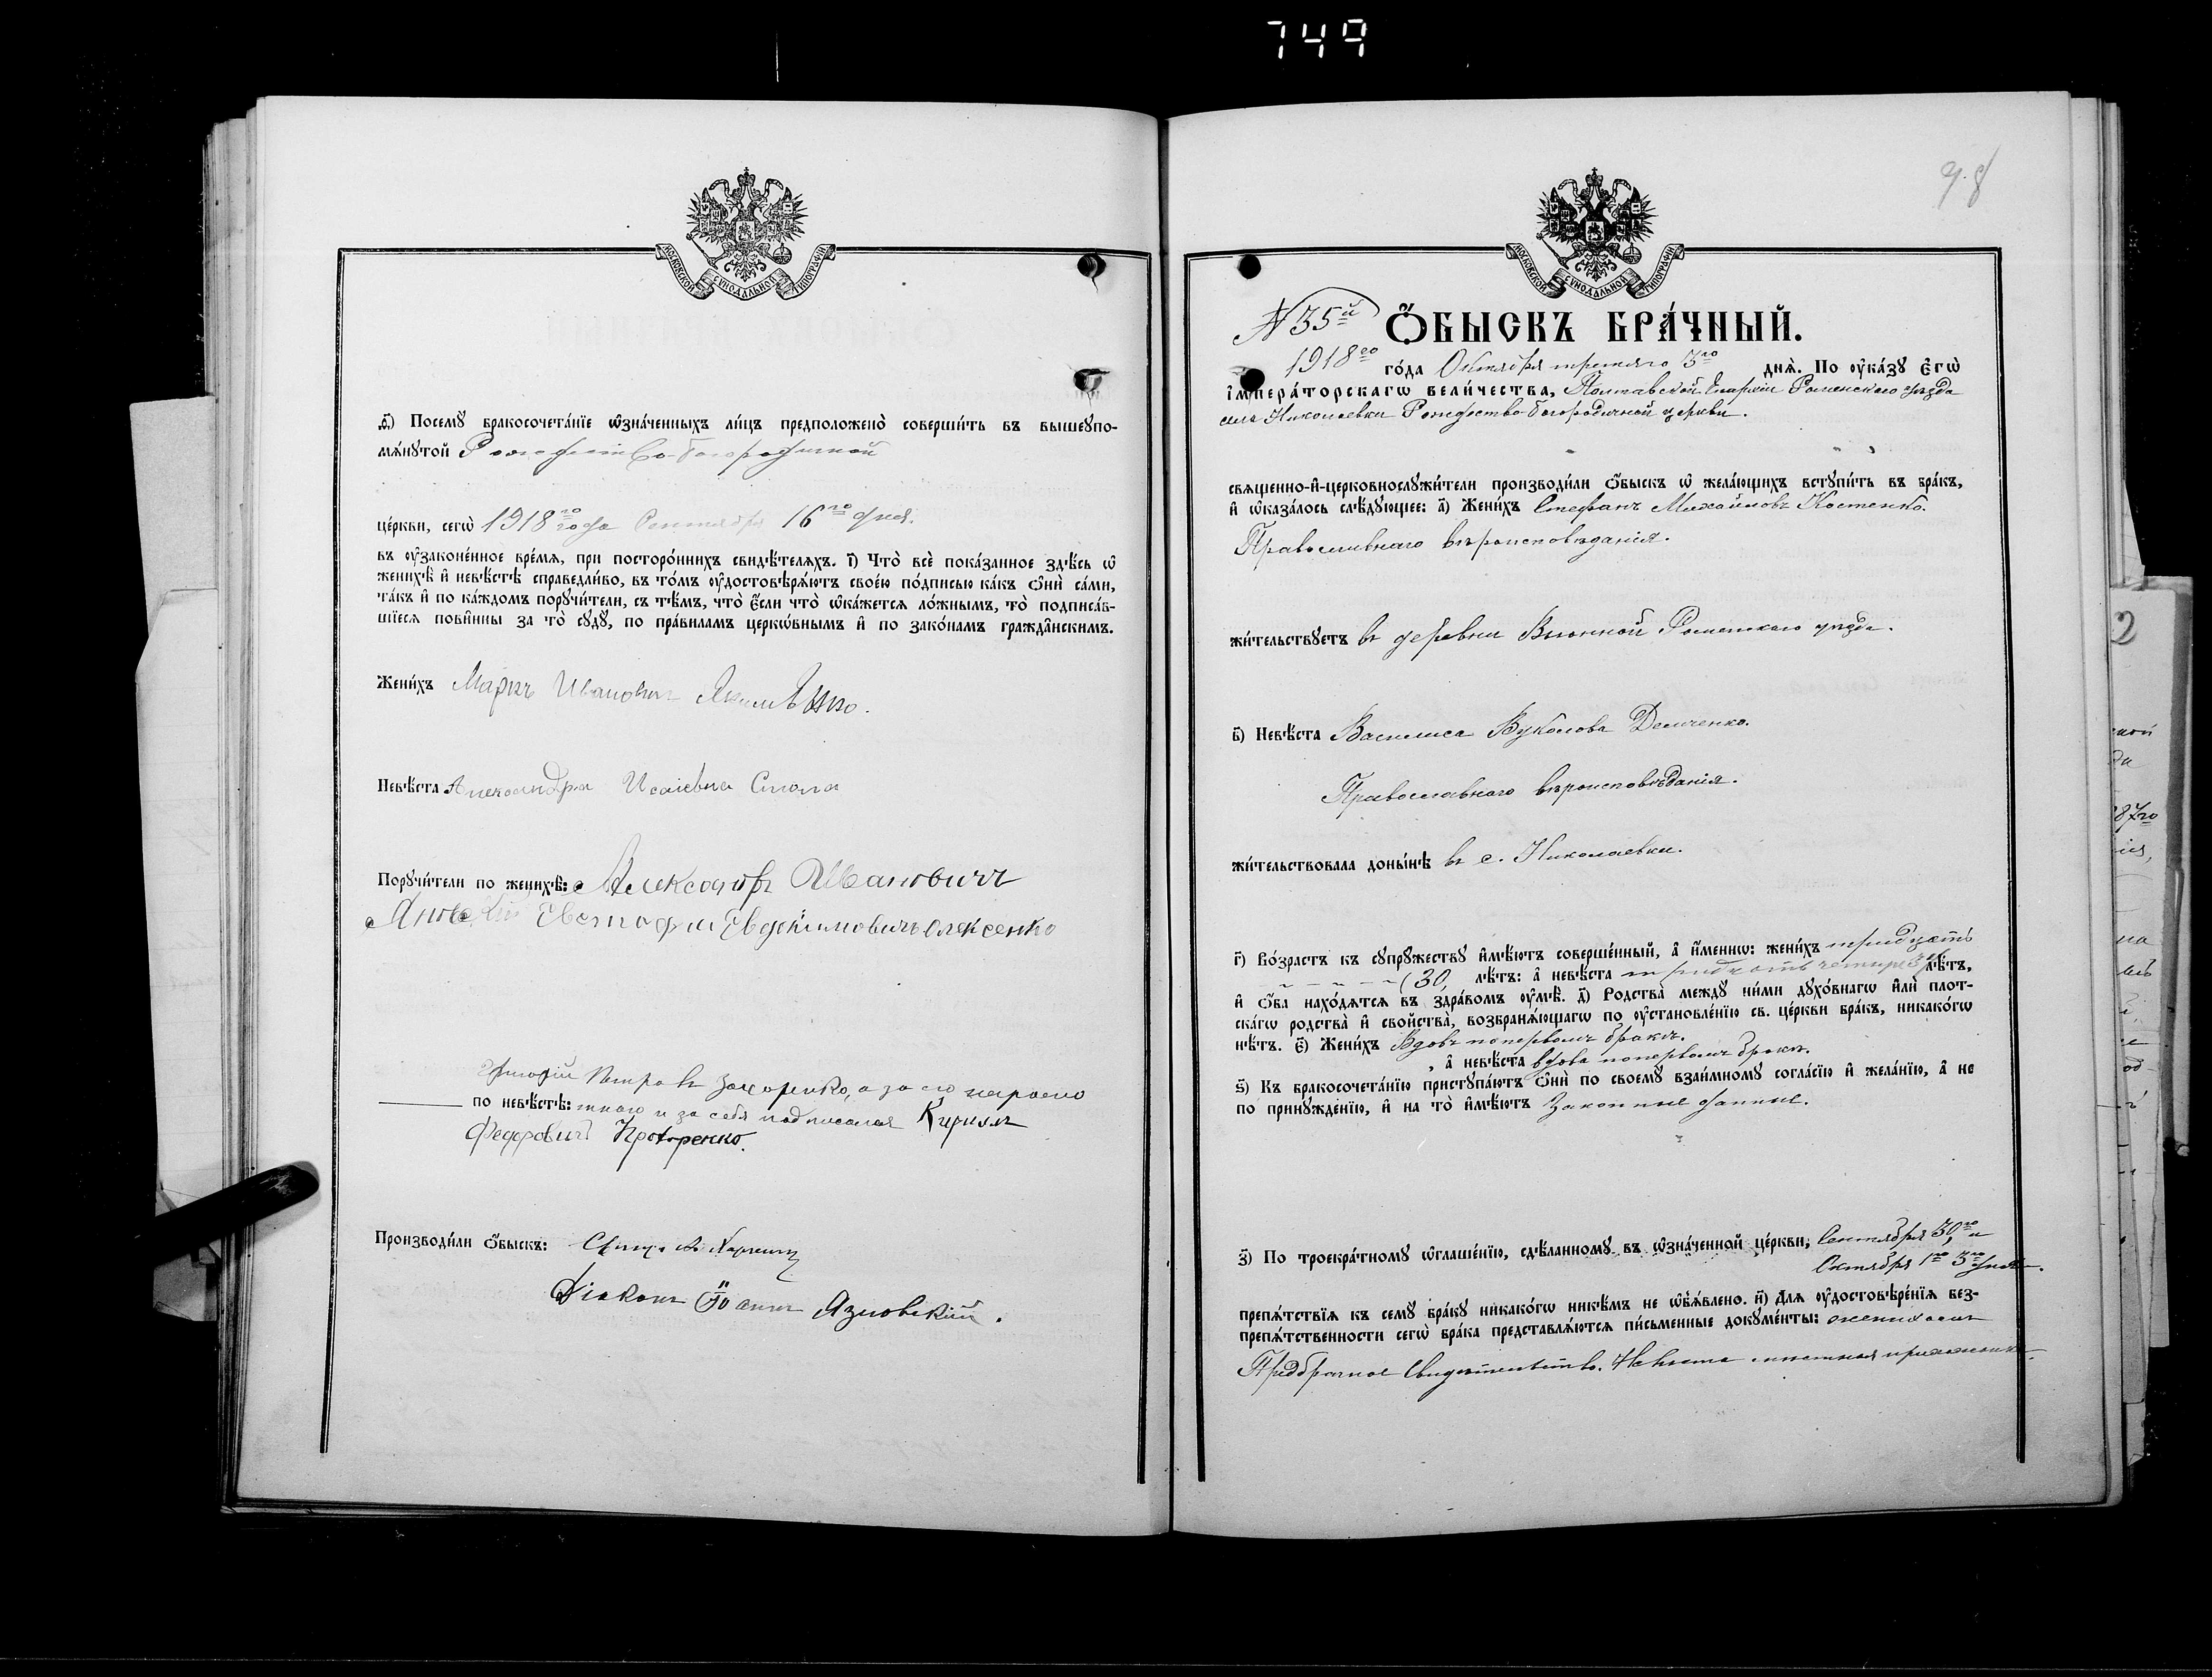 749
МОСКОВСКОЙ СѴНОДАЛЬНОЙ ТИПОГРАФІИ
ѳ҃) Посемꙋ̀ бракосочета́нїе ѡ҆зна́ченныхъ ли́цъ предположено̀ соверши́ть въ вышеꙋпо-
мѧ́нꙋтой Рождество-Богородичной
це́ркви, сегѡ̀ 1918 го года Сентября 16 го дня.
въ ᲂу҆зако́ненное вре́мѧ, при посторо́ннихъ свидѣ́телѧхъ. і҃) Что̀ всѐ пока́занное здѣ́сь ѡ҆
женихѣ̀ и҆ невѣ́стѣ справедли́во, въ то́мъ ᲂу҆достовѣрѧ́ютъ свое́ю по́дписью ка́къ ѻ҆нѝ са́ми,
та́къ и҆ по ка́ждомъ порꙋчи́тели, съ тѣ́мъ, что̀ є҆́сли что̀ ѡ҆ка́жетсѧ ло́жнымъ, то̀ подписа́в-
шїесѧ пови́нны за то̀ сꙋдꙋ̀, по пра́виламъ церкѡ́внымъ и҆ по зако́намъ гражда́нскимъ.
Жени́хъ Маркъ Ивановичъ
Невѣ́ста Александра Исаіевна
Порꙋчи́тели по женихѣ̀: Александръ Ивановичъ
Евстафій Евдокимовичъ Олексенко
Григорій Петровъ Захаренко, а за его
по невѣ́стѣ: и за себя подписался Кирилъ
Федоровичъ
Производи́ли ѻ҆́быскъ: Свящ.
Діаконъ Іоаннъ Язловскій.
98
МОСКОВСКОЙ СѴНОДАЛЬНОЙ ТИПОГРАФІИ
№ 35й ѺБЫСКЪ БРА́ЧНЫЙ.
1918 го го́да Октября третяго 3 го днѧ̀. По ᲂу҆ка́зꙋ Є҆гѡ̀
І҆мпера́торскагѡ вели́чества, Полтавской Епархіи Роменскаго уѣзда
села Николаевки Рождество-Богородичной церкви.
свѧще́нно-и҆-церковнослꙋжи́тели производи́ли ѻ҆́быскъ ѡ҆ жела́ющихъ встꙋпи́ть въ бра́къ,
и҆ ѡ҆каза́лось слѣ́дꙋющее: а҃) Жени́хъ Стефанъ Михайловъ Костенко.
Православнаго вѣроисповѣданія.
жи́тельствꙋетъ въ деревни Вьюнной Роменскаго уѣзда.
в҃) Невѣ́ста Василиса Вуколова Демченко.
Православнаго вѣроисповѣданія.
жи́тельствовала доны́нѣ въ с. Николаевки.
г҃) Во́зрастъ къ сꙋпрꙋ́жествꙋ и҆мѣ́ютъ соверше́нный, а҆ и҆́меннѡ: жени́хъ тридцать
(30, лѣ́тъ: а҆ невѣ́ста тридцать четыре 34 лѣ́тъ,
и҆ ѻ҆́ба нахо́дѧтсѧ въ здра́вомъ ᲂу҆мѣ̀. д҃) Родства̀ междꙋ̀ ни́ми дꙋхо́внагѡ и҆лѝ плот-
ска́гѡ родства̀ и҆ сво́йства, возбранѧ́ющагѡ по ᲂу҆становле́нїю св. це́ркви бра́къ, никако́гѡ
нѣ́тъ. є҃) Жени́хъ Вдовъ по первомъ бракѣ.
, а҆ невѣ́ста вдова по первомъ бракѣ.
ѕ҃) Къ бракосочета́нїю пристꙋпа́ютъ ѻ҆нѝ по своемꙋ̀ взаи́мномꙋ согла́сїю и҆ жела́нїю, а҆ не
по принꙋжде́нїю, и҆ на то̀ и҆мѣ́ютъ Законные данные.
з҃) По троекра́тномꙋ ѡ҆глаше́нїю, сдѣ́ланномꙋ въ ѡ҆зна́ченной це́ркви, Сентября 30, го и
Октября 1 го 3 го дня.
препѧ́тствїѧ къ семꙋ̀ бра́кꙋ никако́гѡ никѣ́мъ не ѡ҆б̾ѧ́влено. и҃) Длѧ ᲂу҆достовѣре́нїѧ без-
препѧ́тственности сегѡ̀ бра́ка представлѧ́ютсѧ пи́сьменные докꙋме́нты: женихомъ
Предбрачное свидѣтельство. Невѣста мѣстная прихожанка.